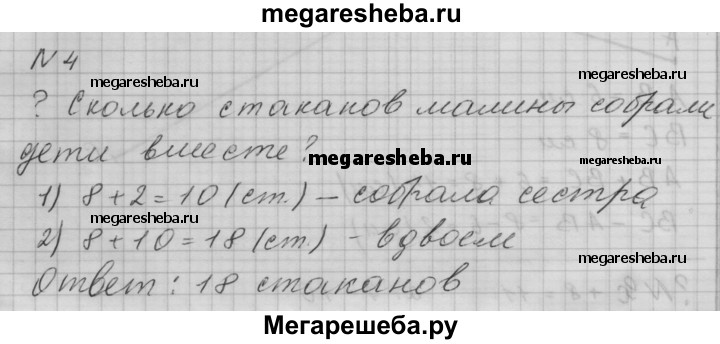 megaresheba.ru
N 4
megaresheba.ru megaresheba.ru
? Сколько стаканов малины собрали
дети вместе?
megaresheba.ru megaresheba.ru
1) 8+2=10 (ст.) – собрала сестра
megaresheba.ru
2) 8+10=18 (ст.) - вдвоем
megaresheba.ru
Ответ: 18 стаканов
Мегарешеба.ру